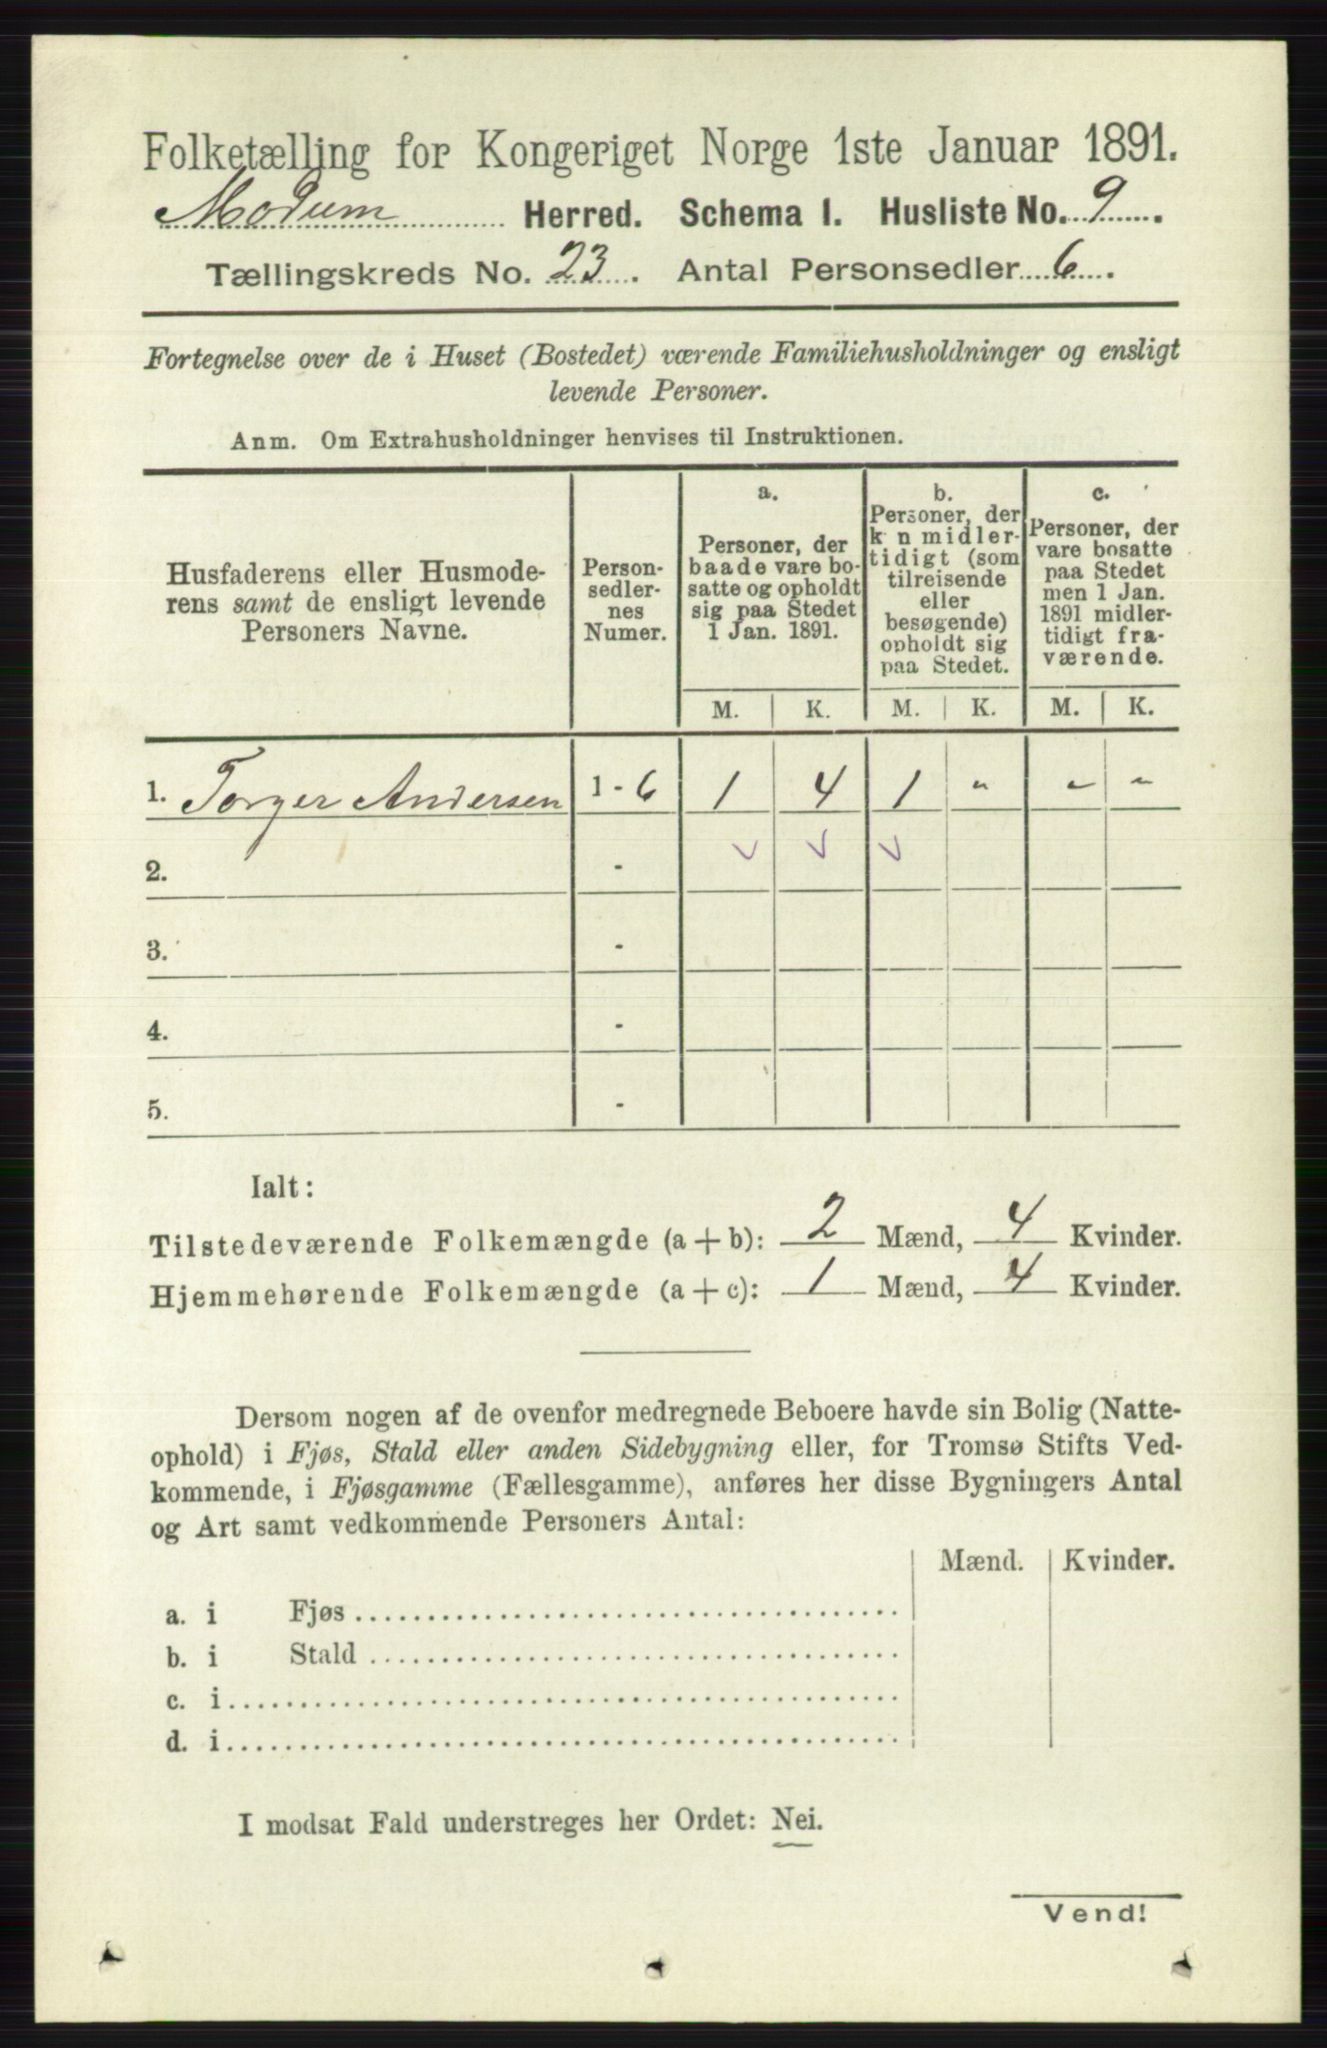 Folketælling for Kongeriget Norge 1ste Januar 1891.
Modum Herred. Schema I. Husliste No. 9.
Tællingskreds No. 23. Antal Personsedler 6.
Fortegnelse over de i Huset (Bostedet) værende Familiehusholdninger og ensligt
levende Personer.
Anm. Om Extrahusholdninger henvises til Instruktionen.
Husfaderens eller Husmode-
rens samt de ensligt levende
Personers Navne.
Person-
sedler-
nes
Numer.
a.
Personer, der
baade vare bo-
satte og opholdt
sig paa Stedet
1 Jan. 1891.
b.
Personer, der
k n midler-
tidigt (som
tilreisende
eller
besøgende)
opholdt sig
paa Stedet.
c.
Personer, der
vare bosatte
paa Stedet
men 1 Jan.
1891 midler-
tidigt fra-
værende.
M. K. M. K. M. K.
1. Torger Andersen 1 - 6 1 4 1 " " "
2. -
3. -
4. -
5. -
Ialt:
Tilstedeværende Folkemængde (a + b): 2 Mænd, 4 Kvinder.
Hjemmehørende Folkemængde (a + c): 1 Mænd, 4 Kvinder.
Dersom nogen af de ovenfor medregnede Beboere havde sin Bolig (Natte-
ophold) i Fjøs, Stald eller anden Sidebygning eller, for Tromsø Stifts Ved-
kommende, i Fjøsgamme (Fællesgamme), anføres her disse Bygningers Antal
og Art samt vedkommende Personers Antal:
Mænd. Kvinder.
a. i Fjøs
b. i Stald
c. i
d. i
I modsat Fald understreges her Ordet: Nei.
Vend!